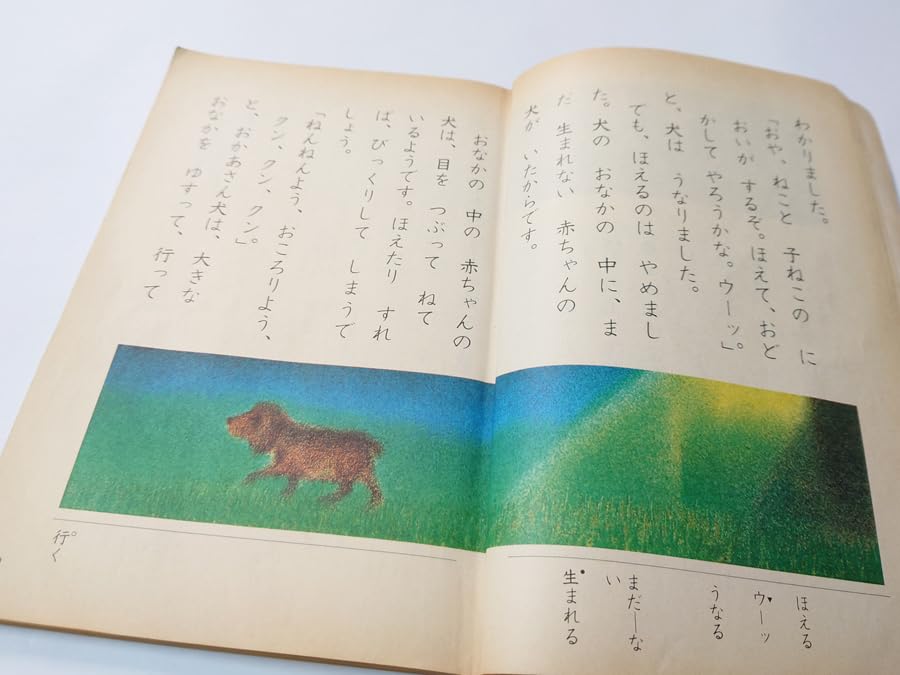 わかりました。
「おや、ねこと 子ねこの に
おいが するぞ。ほえて、おど
かして やろうかな。ウーッ」。
と、犬は うなりました。
でも、ほえるのは やめまし
た。犬の おなかの 中に、ま
だ 生まれない 赤ちゃんの
犬が いたからです。
おなかの 中の 赤ちゃんの
犬は、目を つぶって ねて
いるようです。ほえたり すれ
ば、びっくりして しまうで
しょう。
「ねんねんよう、おころりよう、
クン、クン、クン」。
と、おかあさん犬は、大きな
おなかを ゆすって、行って
ほえる
ウーッ
うなる
まだーな
い
生まれる
行く